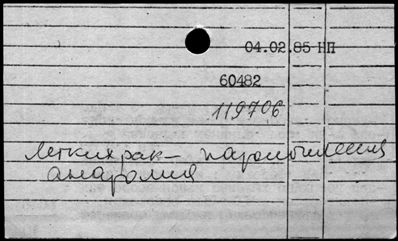 04.02.85 НП
60482
119706
легких рак – паром
анатомия